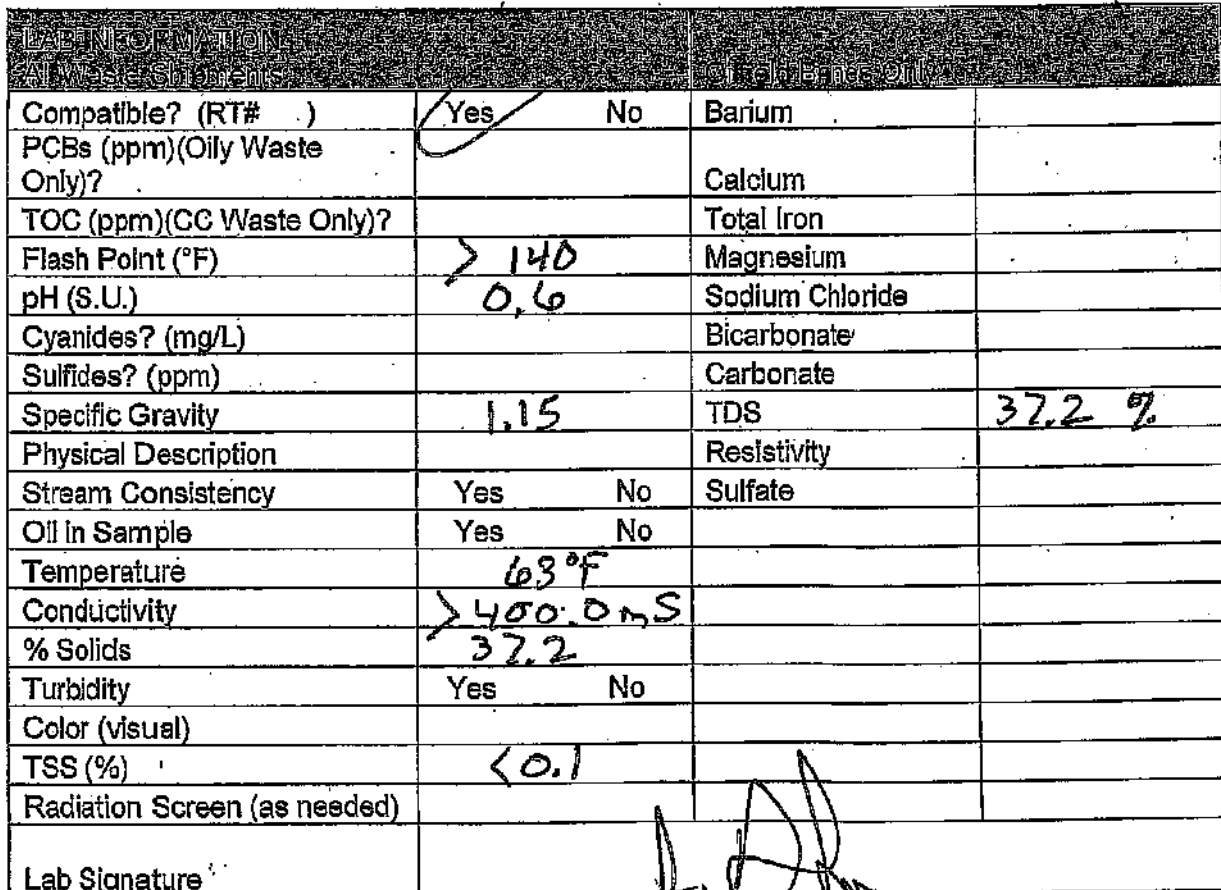 LAB INFORMATION
All Waste Shipments Oilfield Brines Only
Compatible? (RT# ) Yes No Barium
PCBs (ppm)(Oily Waste
Only)? Calcium
TOC (ppm)(CC Waste Only)? Total Iron
Flash Point (°F) > 140 Magnesium
pH (S.U.) 0.6 Sodium Chloride
Cyanides? (mg/L) Bicarbonate
Sulfides? (ppm) Carbonate
Specific Gravity 1.15 TDS 37.2 %
Physical Description Resistivity
Stream Consistency Yes No Sulfate
Oil in Sample Yes No
Temperature 63°F
Conductivity >400.0 mS
% Solids 37.2
Turbidity Yes No
Color (visual)
TSS (%) <0.1
Radiation Screen (as needed)
Lab Signature